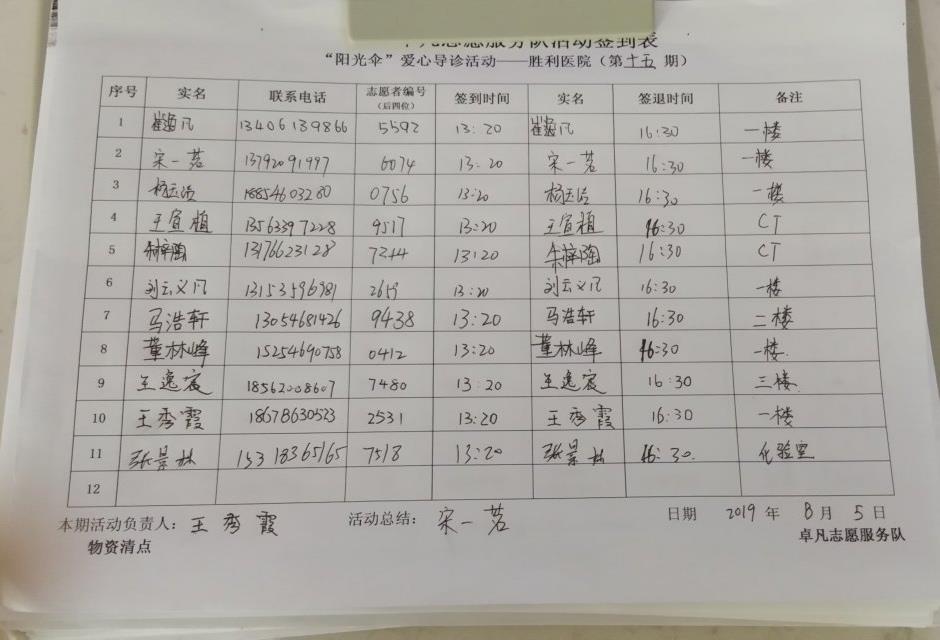 卓凡志愿服务队活动签到表
“阳光伞”爱心导诊活动——胜利医院（第十五期）
序号 实名 联系电话 志愿者编号（后四位） 签到时间 实名 签退时间 备注
1 崔逸凡 13406139866 5592 13:20 崔逸凡 16:30 一楼
2 宋一茗 13792091997 6074 13:20 宋一茗 16:30 一楼
3 杨云浩 18854603280 0756 13:20 杨云浩 16:30 一楼
4 王宜植 13563397228 9517 13:20 王宜植 16:30 CT
5 朱梓陶 13176623128 7244 13:20 朱梓陶 16:30 CT
6 刘云义凡 13153596981 2659 13:20 刘云义凡 16:30 一楼
7 马浩轩 13054681426 9438 13:20 马浩轩 16:30 二楼
8 董林峰 15254690758 0412 13:20 董林峰 16:30 一楼.
9 王逸宸 18562008607 7480 13:20 王逸宸 16:30 三楼.
10 王秀霞 18678630523 2531 13:20 王秀霞 16:30 一楼
11 张景林 15318365165 7518 13:20 张景林 16:30. 化验室
12
本期活动负责人：王秀霞 活动总结：宋一茗 日期 2019年8月5日
物资清点 卓凡志愿服务队